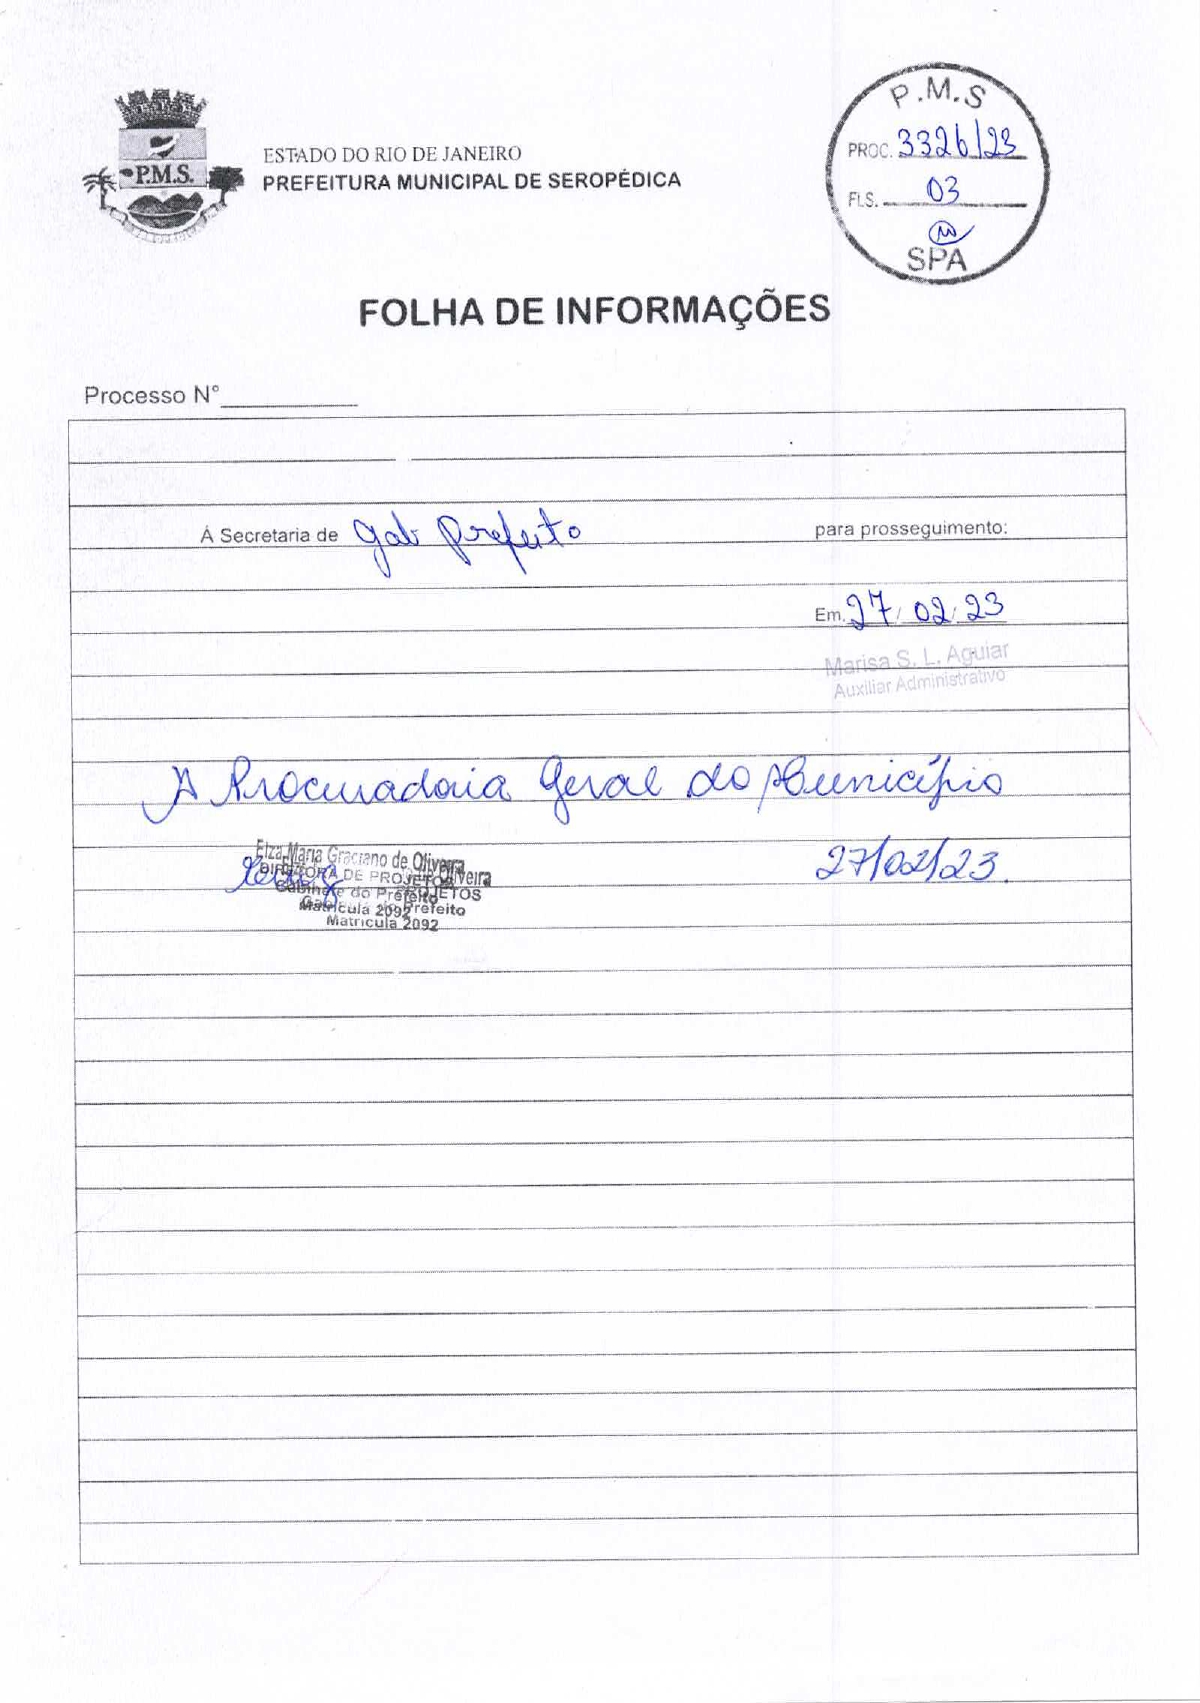 P.M.S
PROC. 3326/23
FLS. 03
SPA
P.M.S.
ESTADO DO RIO DE JANEIRO
PREFEITURA MUNICIPAL DE SEROPÉDICA
FOLHA DE INFORMAÇÕES
Processo N°
À Secretaria de gab prefeito para prosseguimento:
Em. 27/02/23
Marisa S. L. Aguiar
Auxiliar Administrativo
A Procuradoria Geral do Município
27/02/23.
Elza Maria Graciano de Oliveira
DIRETORA DE PROJETOS
Gabinete do Prefeito
Matrícula 2092
Matrícula 2092